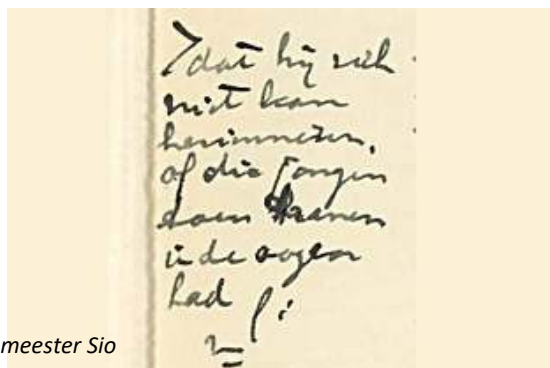 dat hij zich
niet kan
herinneren,
of die jongen
toen tranen
in de oogen
had
meester Sio